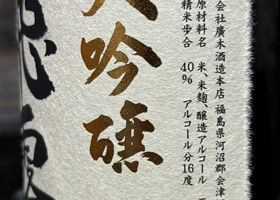 會社廣木酒造本店 福島県河沼郡会津
原材料名 米、米麹、醸造アルコール
精米歩合 40% アルコール分16度
大吟醸